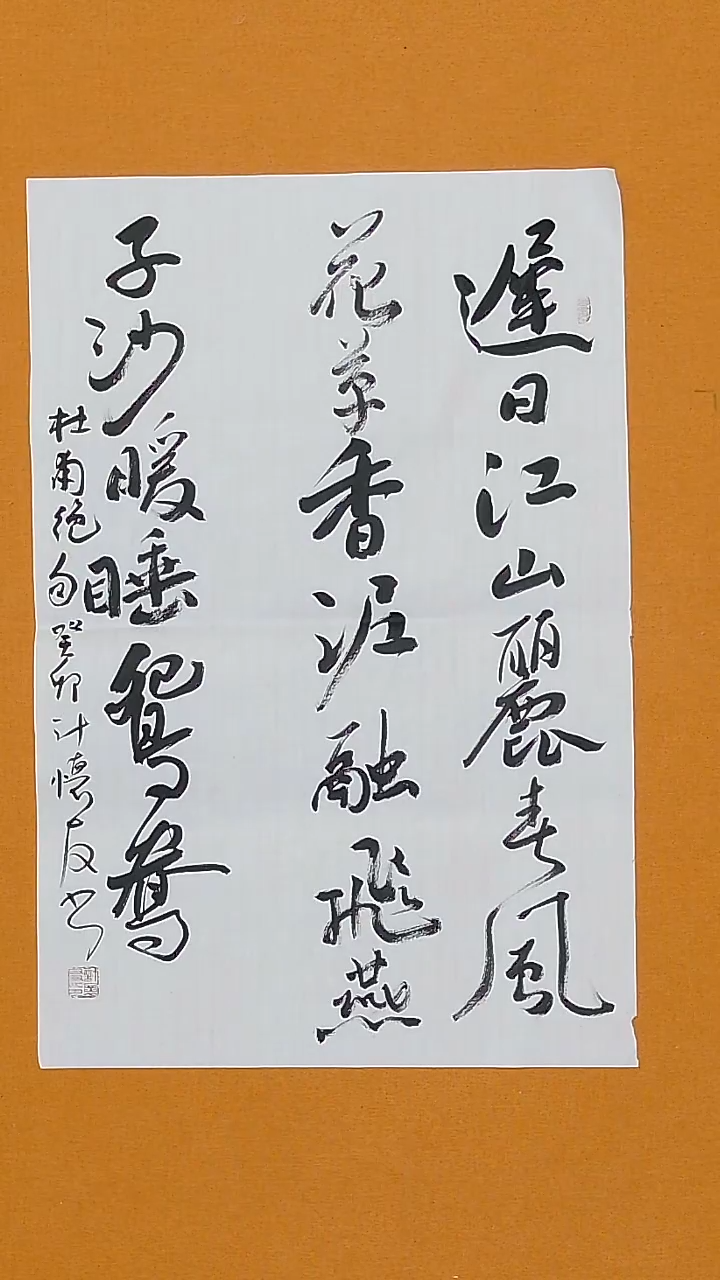 遲日江山麗春風
花草香泥融飛燕
子沙暖睡鴛鴦
杜甫絕句癸卯計懷友书